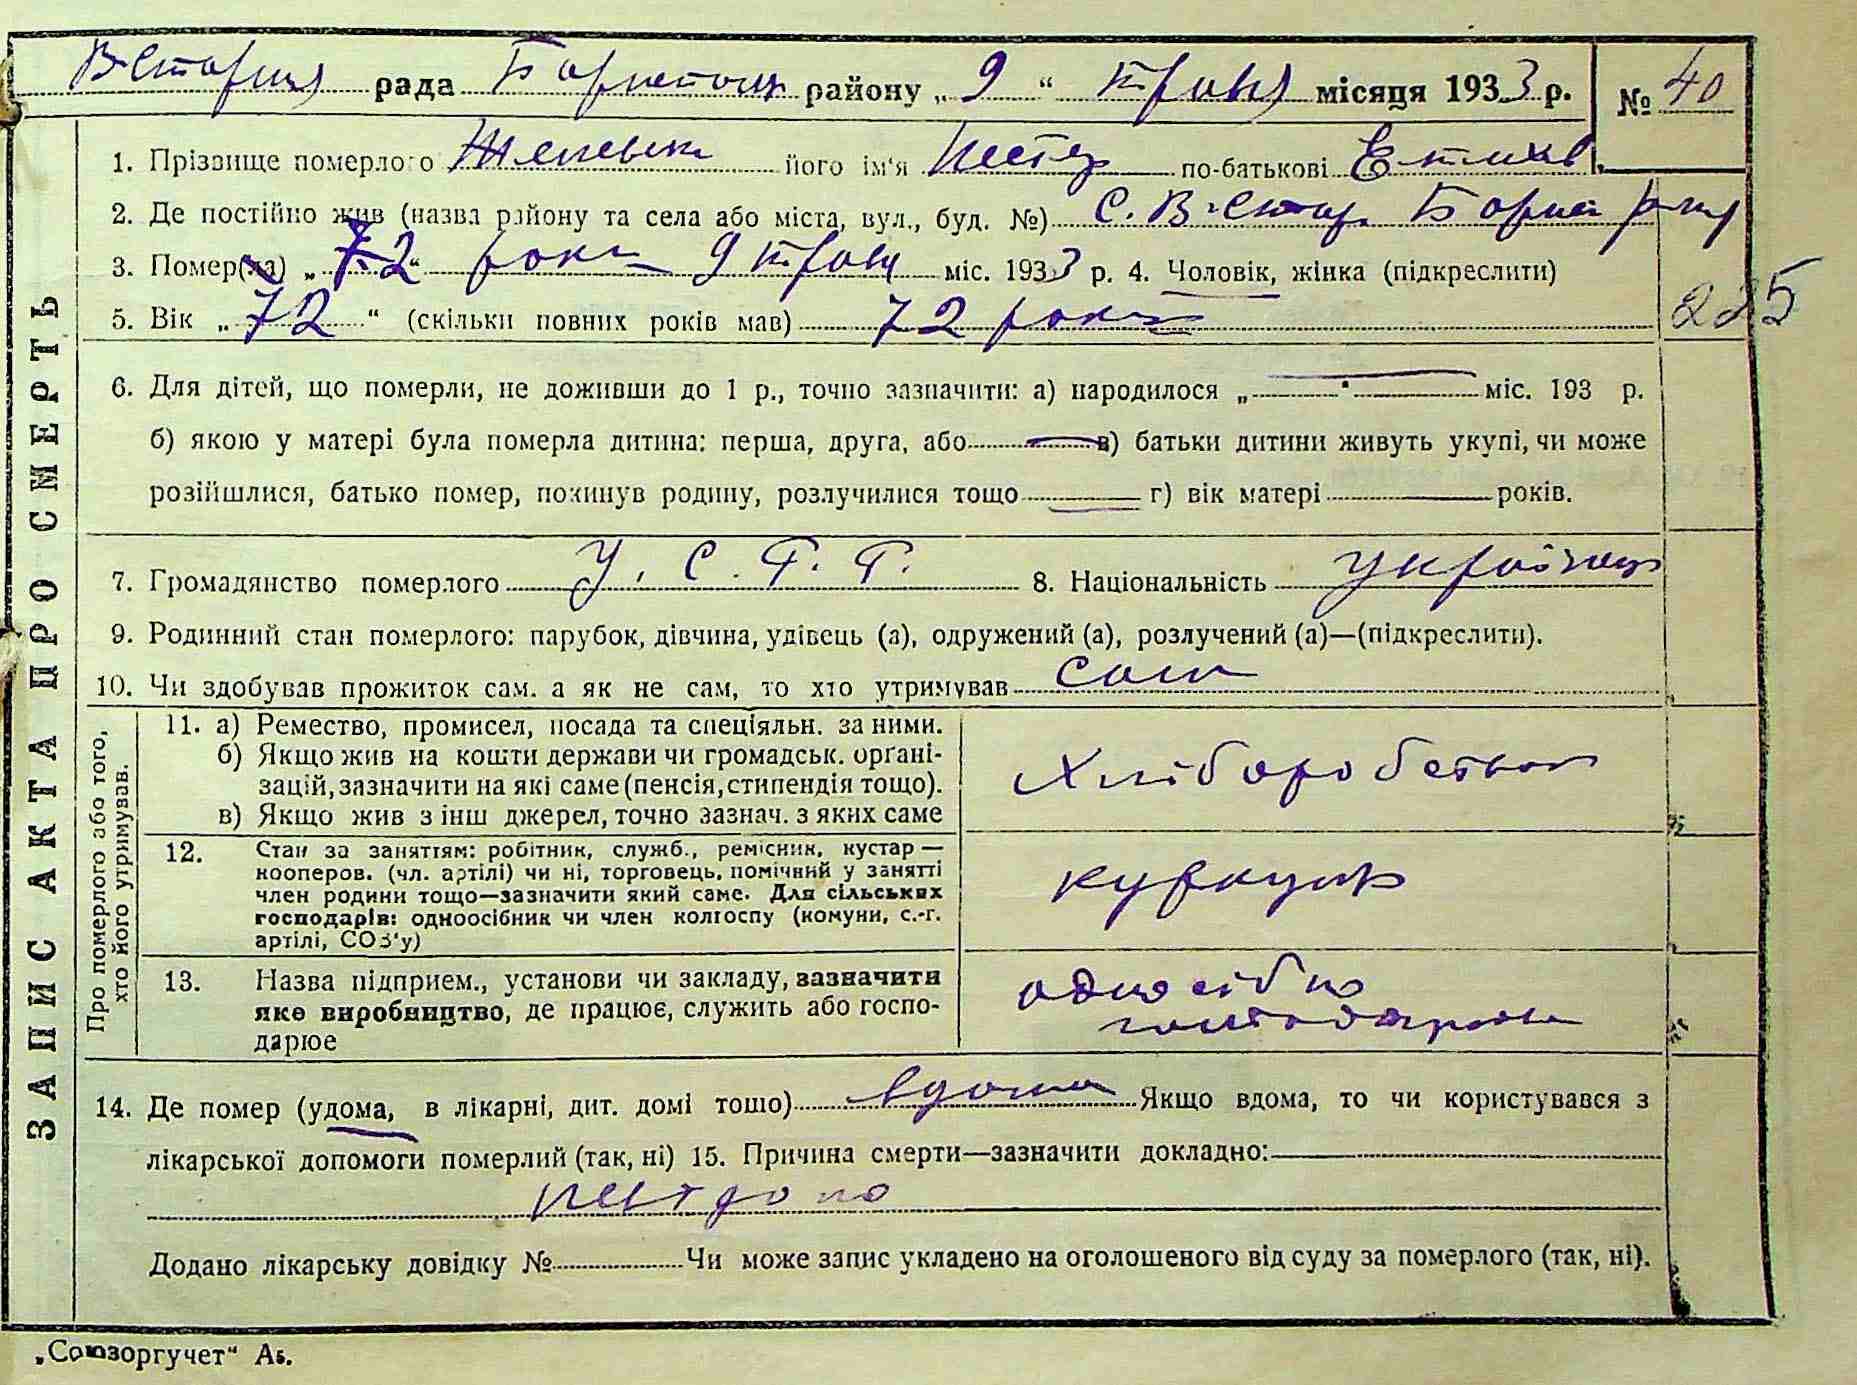 В-Стариця рада Бориспольс району „ 9 “ травня місяця 1933 р. № 40
1. Прізвище померлого його ім'я Нестер по-батькові
2. Де постійно жив (назва району та села або міста, вул., буд. №) С. В-Стар. Борисп району
3. Помер(ла) „ 72 “ роки 9 травн міс. 1933 р. 4. Чоловік, жінка (підкреслити)
5. Вік „ 72 “ (скільки повних років мав) 72 роки
225
6. Для дітей, що померли, не доживши до 1 р., точно зазначити: а) народилося „ “ міс. 193 р.
б) якою у матері була померла дитина: перша, друга, або в) батьки дитини живуть укупі, чи може
розійшлися, батько помер, покинув родину, розлучилися тощо г) вік матері років.
7. Громадянство померлого У. С. Р. Р. 8. Національність українець
9. Родинний стан померлого: парубок, дівчина, удівець (а), одружений (а), розлучений (а)—(підкреслити).
10. Чи здобував прожиток сам. а як не сам, то хто утримував сам
Про померлого або того,
хто його утримував.
11. а) Ремество, промисел, посада та спеціяльн. за ними.
б) Якщо жив на кошти держави чи громадськ. органі-
зацій, зазначити на які саме (пенсія, стипендія тощо).
в) Якщо жив з інш джерел, точно зазнач. з яких саме
хліборобством
12. Стан за заняттям: робітник, служб., ремісник, кустар —
кооперов. (чл. артілі) чи ні, торговець, помічний у занятті
член родини тощо—зазначити який саме. Для сільських
господарів: одноосібник чи член колгоспу (комуни, с.-г.
артілі, СОЗ'у)
куркуль
13. Назва підприєм., установи чи закладу, зазначити
яке виробництво, де працює, служить або госпо-
дарює
одноосібно
14. Де помер (удома, в лікарні, дит. домі тощо) вдома Якщо вдома, то чи користувався з
лікарської допомоги померлий (так, ні) 15. Причина смерти—зазначити докладно:
Додано лікарську довідку № Чи може запис укладено на оголошеного від суду за померлого (так, ні).
ЗАПИС АКТА ПРО СМЕРТЬ
„Союзоргучет“ А5.